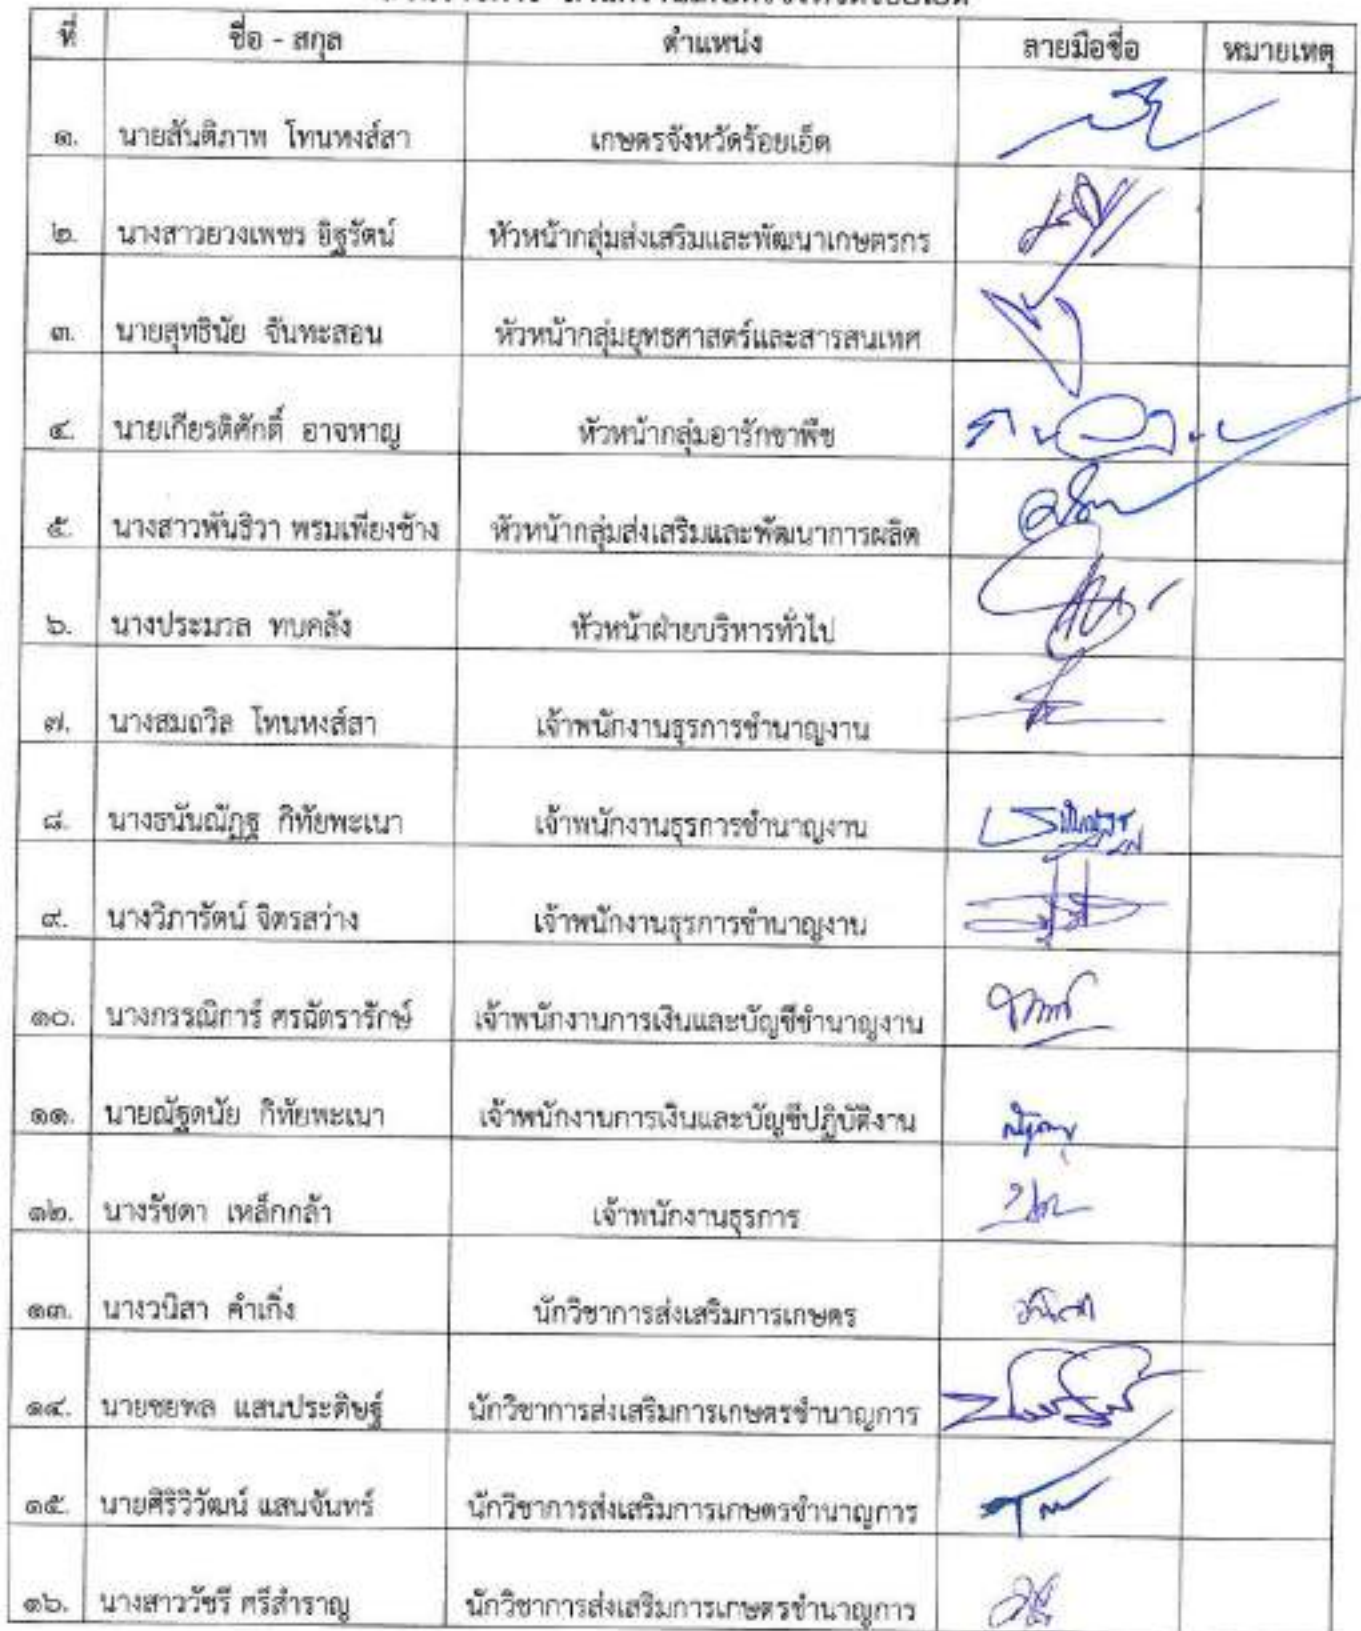 ที่ ชื่อ - สกุล ตำแหน่ง ลายมือชื่อ หมายเหตุ
๑. นายสันติภาพ โทนหงส์สา เกษตรจังหวัดร้อยเอ็ด
๒. นางสาวยวงเพชร อิฐรัตน์ หัวหน้ากลุ่มส่งเสริมและพัฒนาเกษตรกร
๓. นายสุทธินัย จันทะสอน หัวหน้ากลุ่มยุทธศาสตร์และสารสนเทศ
๔. นายเกียรติศักดิ์ อาจหาญ หัวหน้ากลุ่มอารักขาพืช
๕. นางสาวพันธิวา พรมเพียงช้าง หัวหน้ากลุ่มส่งเสริมและพัฒนาการผลิต
๖. นางประมวล ทบคลัง หัวหน้าฝ่ายบริหารทั่วไป
๗. นางสมถวิล โทนหงส์สา เจ้าพนักงานธุรการชำนาญงาน
๘. นางธนันณัฏฐ กิทัยพะเนา เจ้าพนักงานธุรการชำนาญงาน
๙. นางวิภารัตน์ จิตรสว่าง เจ้าพนักงานธุรการชำนาญงาน
๑๐. นางกรรณิการ์ ศรฉัตรารักษ์ เจ้าพนักงานการเงินและบัญชีชำนาญงาน
๑๑. นายณัฐดนัย กิทัยพะเนา เจ้าพนักงานการเงินและบัญชีปฏิบัติงาน
๑๒. นางรัชดา เหล็กกล้า เจ้าพนักงานธุรการ
๑๓. นางวนิสา คำเกิ่ง นักวิชาการส่งเสริมการเกษตร
๑๔. นายชยพล แสนประดิษฐ์ นักวิชาการส่งเสริมการเกษตรชำนาญการ
๑๕. นายศิริวิวัฒน์ แสนจันทร์ นักวิชาการส่งเสริมการเกษตรชำนาญการ
๑๖. นางสาววัชรี ศรีสำราญ นักวิชาการส่งเสริมการเกษตรชำนาญการ